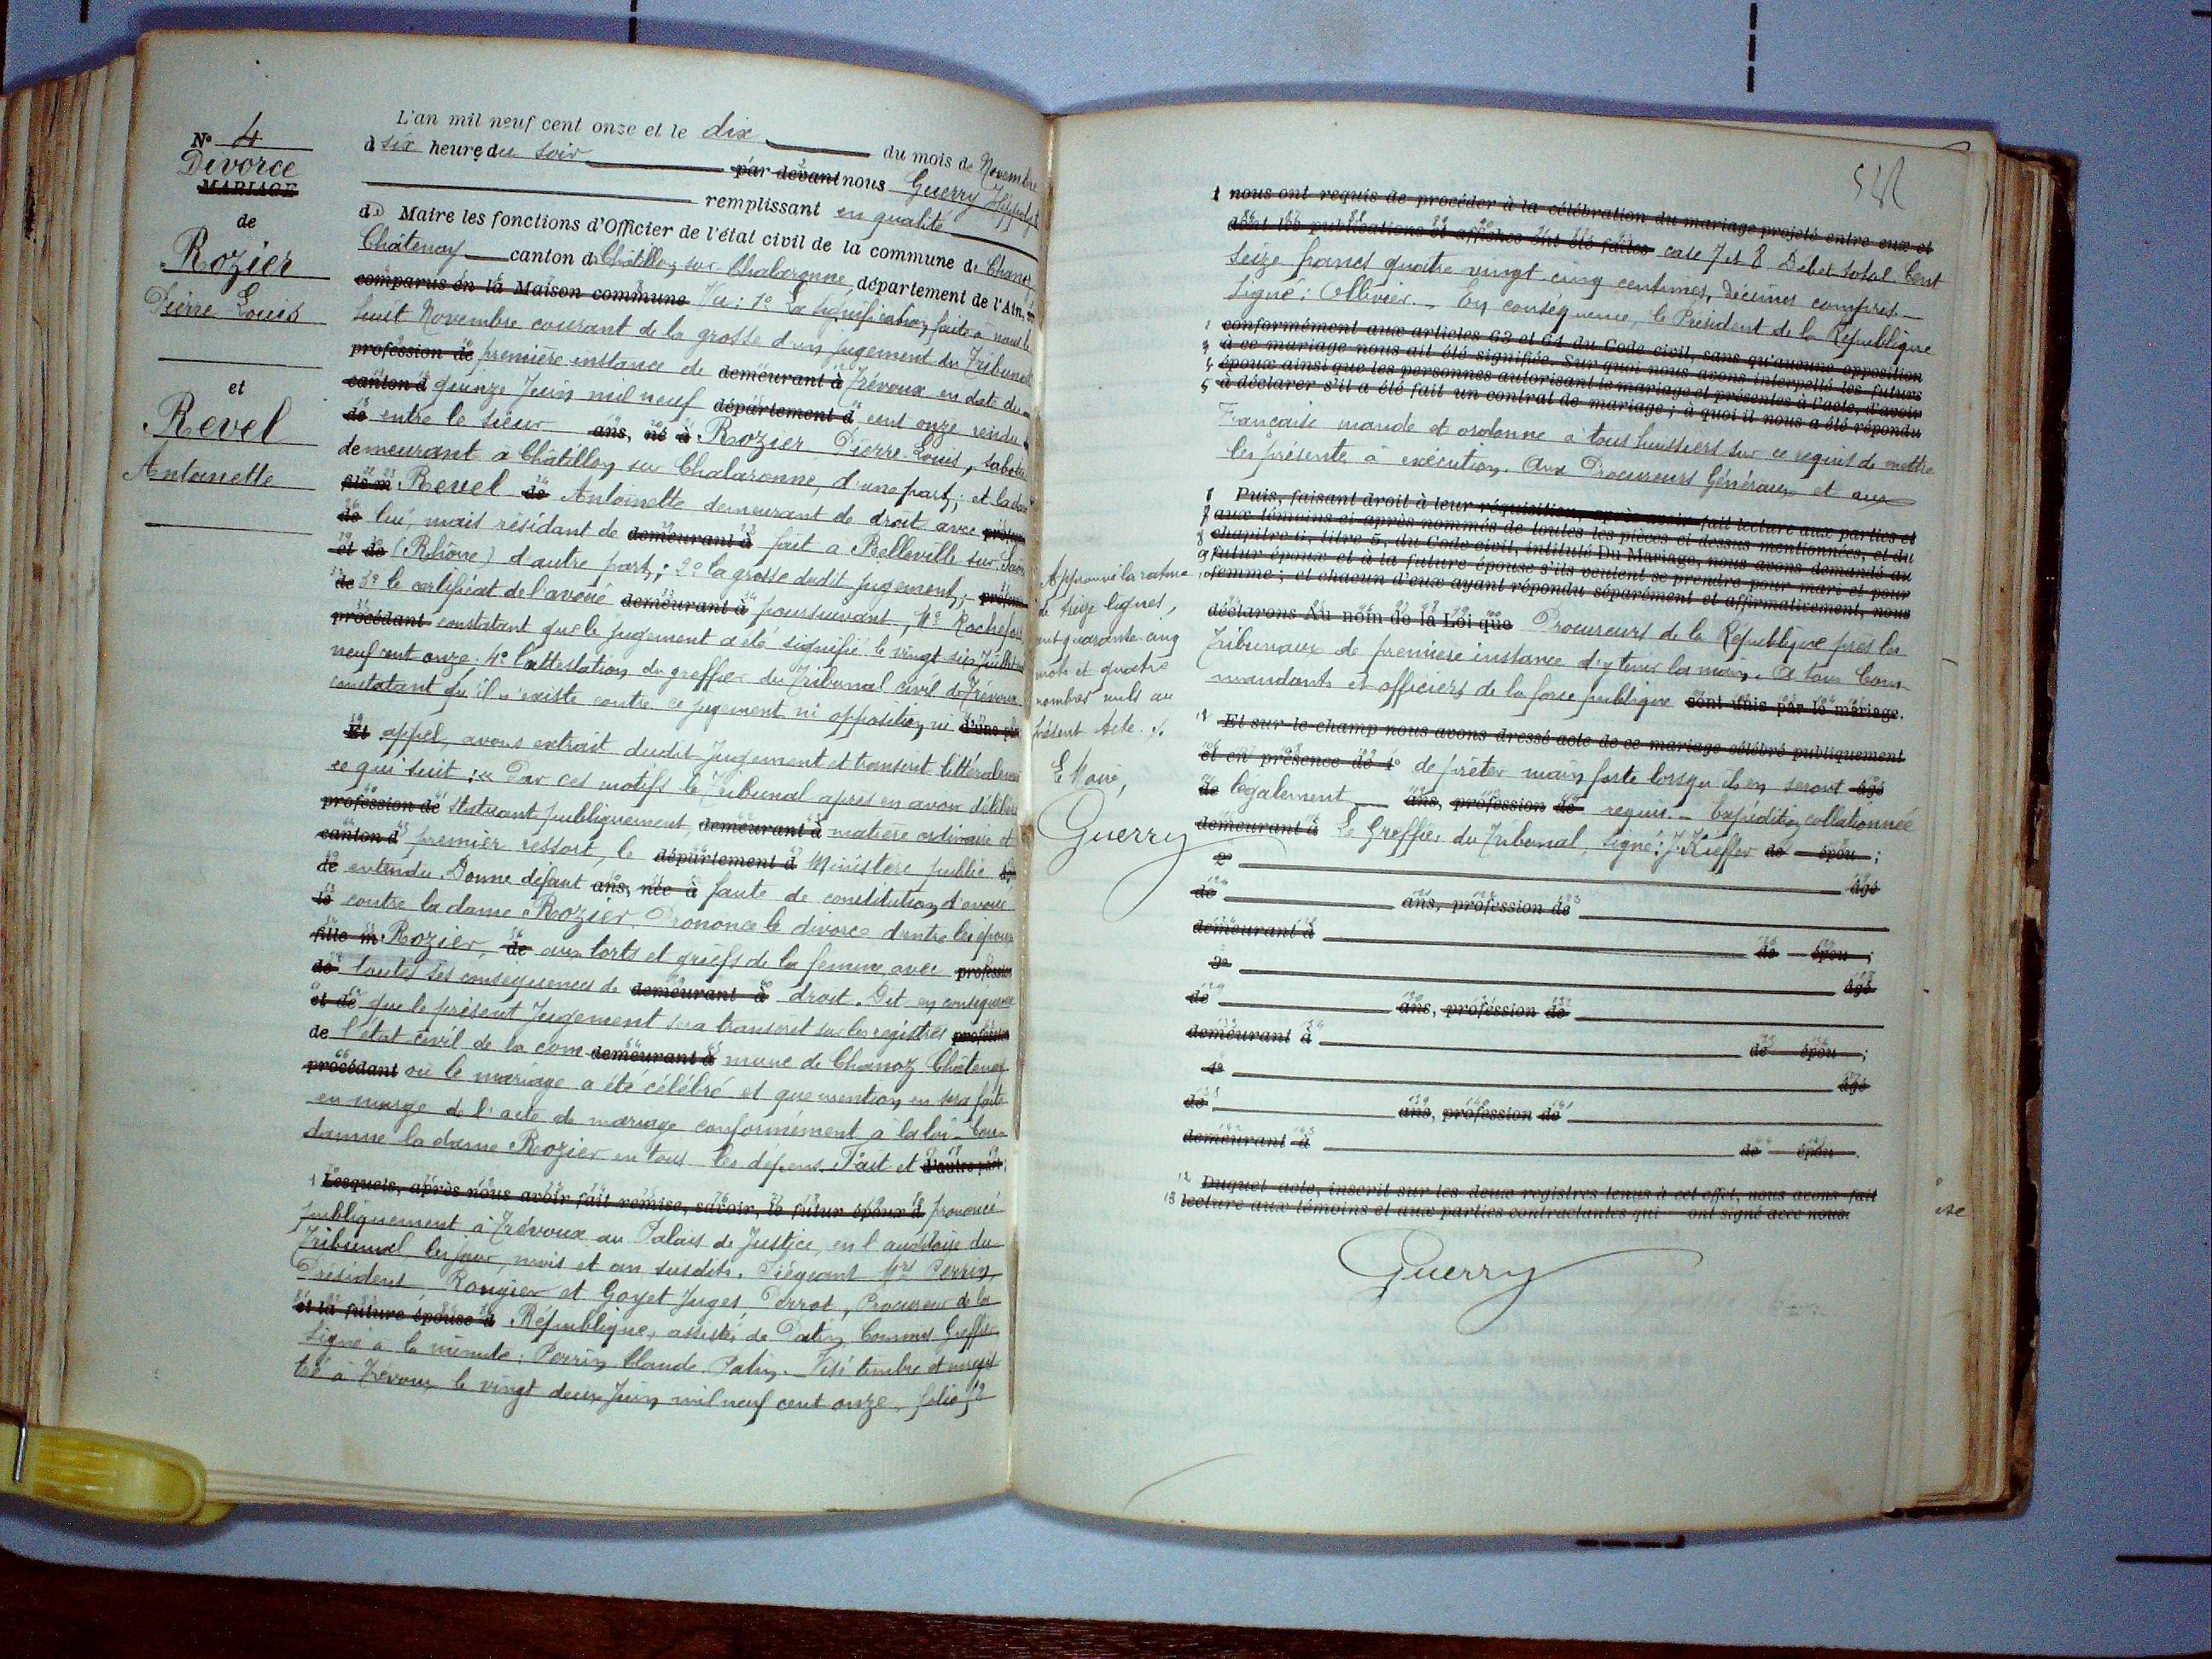 N° 4
Divorce
MARIAGE
de
Rozier
Pierre Louis
et
Revel
Antoinette
L'an mil neuf cent onze et le dix du mois de Novembre
à six heure du soir par devant nous Guerry Hyppolyt
remplissant en qualité
de Maire les fonctions d'Officier de l'état civil de la commune de Chanoz
Châtenay canton de Châtillon sur Chalaronne, département de l'Ain,
comparus en la Maison commune Vu : 1° La signification faite à nous le
huit Novembre courant de la grosse d'un jugement du Tribunal
profession de première instance de demeurant à Trévoux en date du
canton d quinze Juin mil neuf département d cent onze rendu
de entre le sieur ans, né à Rozier Pierre Louis,
demeurant à Châtillon sur Chalaronne, d'une part ; et la dame
fils m Revel de Antoinette demeurant de droit avec profession
de lui, mais résidant de demeurant à fait à Belleville sur Saône
et de (Rhône) d'autre part ; 2° la grosse dudit jugement ; profession
de 3° le certificat de l'avoué demeurant à poursuivant, Me Rochefort
procédant constatant que le jugement a été signifié le vingt six Juillet mil
neuf cent onze. 4° l'attestation du greffier du Tribunal civil de Trévoux
constatant qu'il n'existe contre ce jugement ni opposition, ni d'une part
Et appel, avons extrait dudit Jugement et transcrit littéralement
ce qui suit : « Par ces motifs le Tribunal après en avoir délibéré
profession de statuant publiquement, demeurant à matière ordinaire et
canton d premier ressort, le département d Ministère public
de entendu. Donne défaut ans, née à faute de constitution d'avoué
le contre la dame Rozier. Prononce le divorce d'entre les époux
fille m Rozier, de aux torts et griefs de la femme, avec profession
de toutes ses conséquences de demeurant à droit. Dit en conséquence
et de que le présent Jugement sera transcrit sur les registres profession
de l'état civil de la com demeurant à mune de Chanoz Châtenay
procédant où le mariage a été célébré et que mention en sera faite
en marge de l'acte de mariage conformément à la loi. Con-
damne la dame Rozier en tous les dépens. Fait et d'autre part ;
Lesquels, après nous avoir fait remise, savoir, le futur époux d prononcé
publiquement à Trévoux au Palais de Justice, en l'auditoire du
Tribunal les jour, mois et an susdits. Siégeant Mrs Perrin,
Président, Rougier et Goyet Juges, Perrot, Procureur de la
et la future épouse d République, assistés de Patin, Commis Greffier
Signé à la minute : Perrin, Claude Patin. Visé timbre et enregis
tré à Trévoux le vingt deux Juin mil neuf cent onze, folio 52
nous ont requis de procéder à la célébration du mariage projeté entre eux et
dont les publications et affiches ont été faites case 7 et 8 Debet total Cent
seize francs quatre vingt cinq centimes, décimes compris.
Signé : Ollivier. En conséquence, le Président de la République
conformément aux articles 63 et 64 du Code civil, sans qu'aucune opposition
à ce mariage nous ait été signifiée. Sur quoi nous avons interpellé les futurs
époux ainsi que les personnes autorisant le mariage et présentes à l'acte, d'avoir
à déclarer s'il a été fait un contrat de mariage ; à quoi il nous a été répondu
Française mande et ordonne à tous huissiers sur ce requis de mettre
les présentes à exécution. Aux Procureurs Généraux et aux
Puis, faisant droit à leur réquisition, après avoir fait lecture aux parties et
aux témoins ci-après nommés de toutes les pièces ci-dessus mentionnées, et du
chapitre 6, titre 5, du Code civil, intitulé Du Mariage, nous avons demandé au
futur époux et à la future épouse s'ils veulent se prendre pour mari et pour
femme ; et chacun d'eux ayant répondu séparément et affirmativement, nous
déclarons Au nom de la Loi que Procureurs de la République près les
Tribunaux de première instance d'y tenir la main. A tous Com-
mandants et officiers de la force publique sont unis par le mariage.
Et sur le champ nous avons dressé acte de ce mariage célébré publiquement
et en présence de 1° de prêter main forte lorsqu'ils en seront âgé
de légalement ans, profession de requis. Expédition collationnée
demeurant à Le Greffier du Tribunal, Signé : J. Kieffer de épou ;
2° âgé
de ans, profession de
demeurant à de épou ;
3° âgé
de ans, profession de
demeurant à de épou ;
4° âgé
de ans, profession de
demeurant à de épou .
Duquel acte, inscrit sur les deux registres tenus à cet effet, nous avons fait
lecture aux témoins et aux parties contractantes qui ont signé avec nous.
Guerry
Approuvé la rature
de treize lignes,
cent quarante cinq
mots et quatre
nombres nuls au
présent acte.
Le Maire,
Guerry